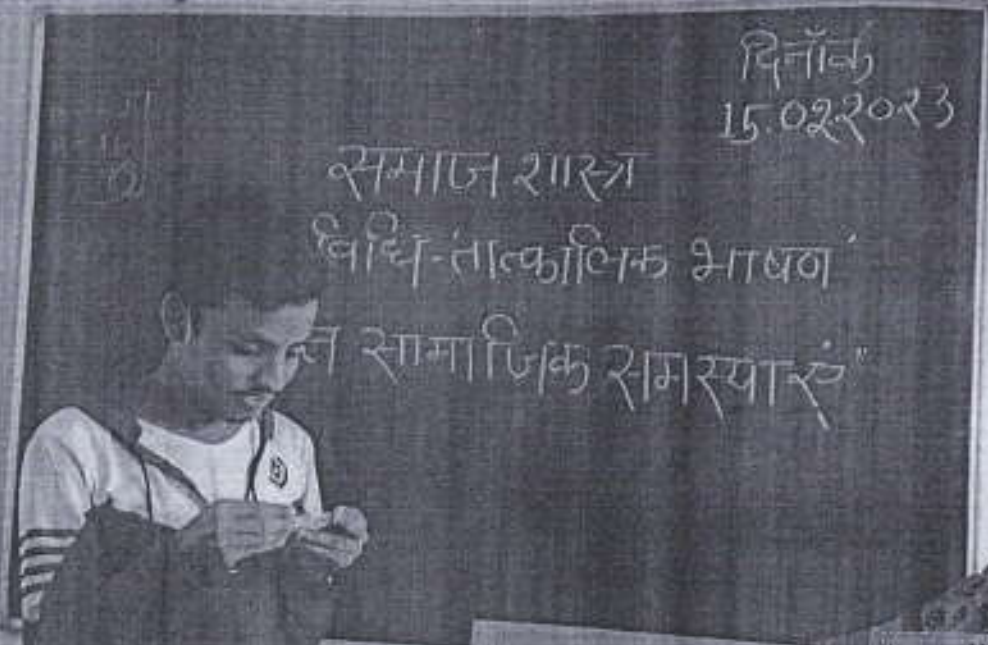 दिनाँक
15.02.2023
समाज शास्त्र
विधि-तात्कालिक भाषण
सामाजिक समस्याएं"